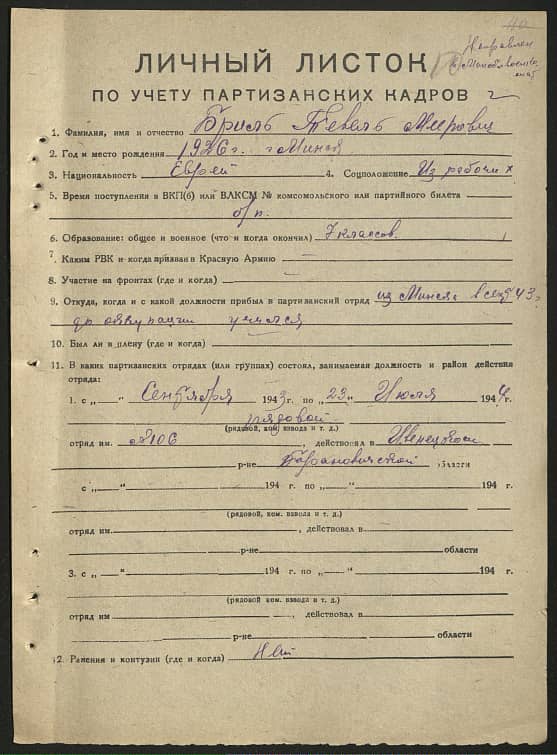 40
Направлен
ЛИЧНЫЙ ЛИСТОК
ПО УЧЕТУ ПАРТИЗАНСКИХ КАДРОВ
1. Фамилия, имя и отчество Бриль Тевель Меерович
2. Год и место рождения 1926 г. г. Минск
3. Национальность Еврей 4. Соцположение Из рабочих
5. Время поступления в ВКП(б) или ВЛКСМ № комсомольского или партийного билета
б/п.
6. Образование: общее и военное (что и когда окончил) 7 классов.
7. Каким РВК и когда призван в Красную Армию —
8. Участие на фронтах (где и когда) —
9. Откуда, когда и с какой должности прибыл в партизанский отряд из Минска в сент 43 г.
до оккупации учился
10. Был ли в плену (где и когда)
11. В каких партизанских отрядах (или группах) состоял, занимаемая должность и район действия
отряда:
1. с „ “ Сентября 1943 г. по „23“ Июля 1944 г.
рядовой
(рядовой, ком. взвода и т. д.)
отряд им. 106, действовал в Ивенецком
р-не Барановичской области
с „ “ 194 г. по „ “ 194 г.
(рядовой, ком. взвода и т. д.)
отряд им. , действовал в
р-не области
3. с „ “ 194 г. по „ “ 194 г.
(рядовой, ком. взвода и т. д.)
отряд им , действовал в
р-не области
2. Ранения и контузии (где и когда) Нет